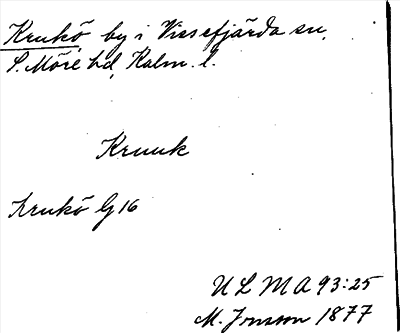 Krukö by i Vissefjärda sn,
S. Möre hd, Kalm. l.
Kruuk
Krukö G 16
ULMA 93:25
M. Jonsson 1877